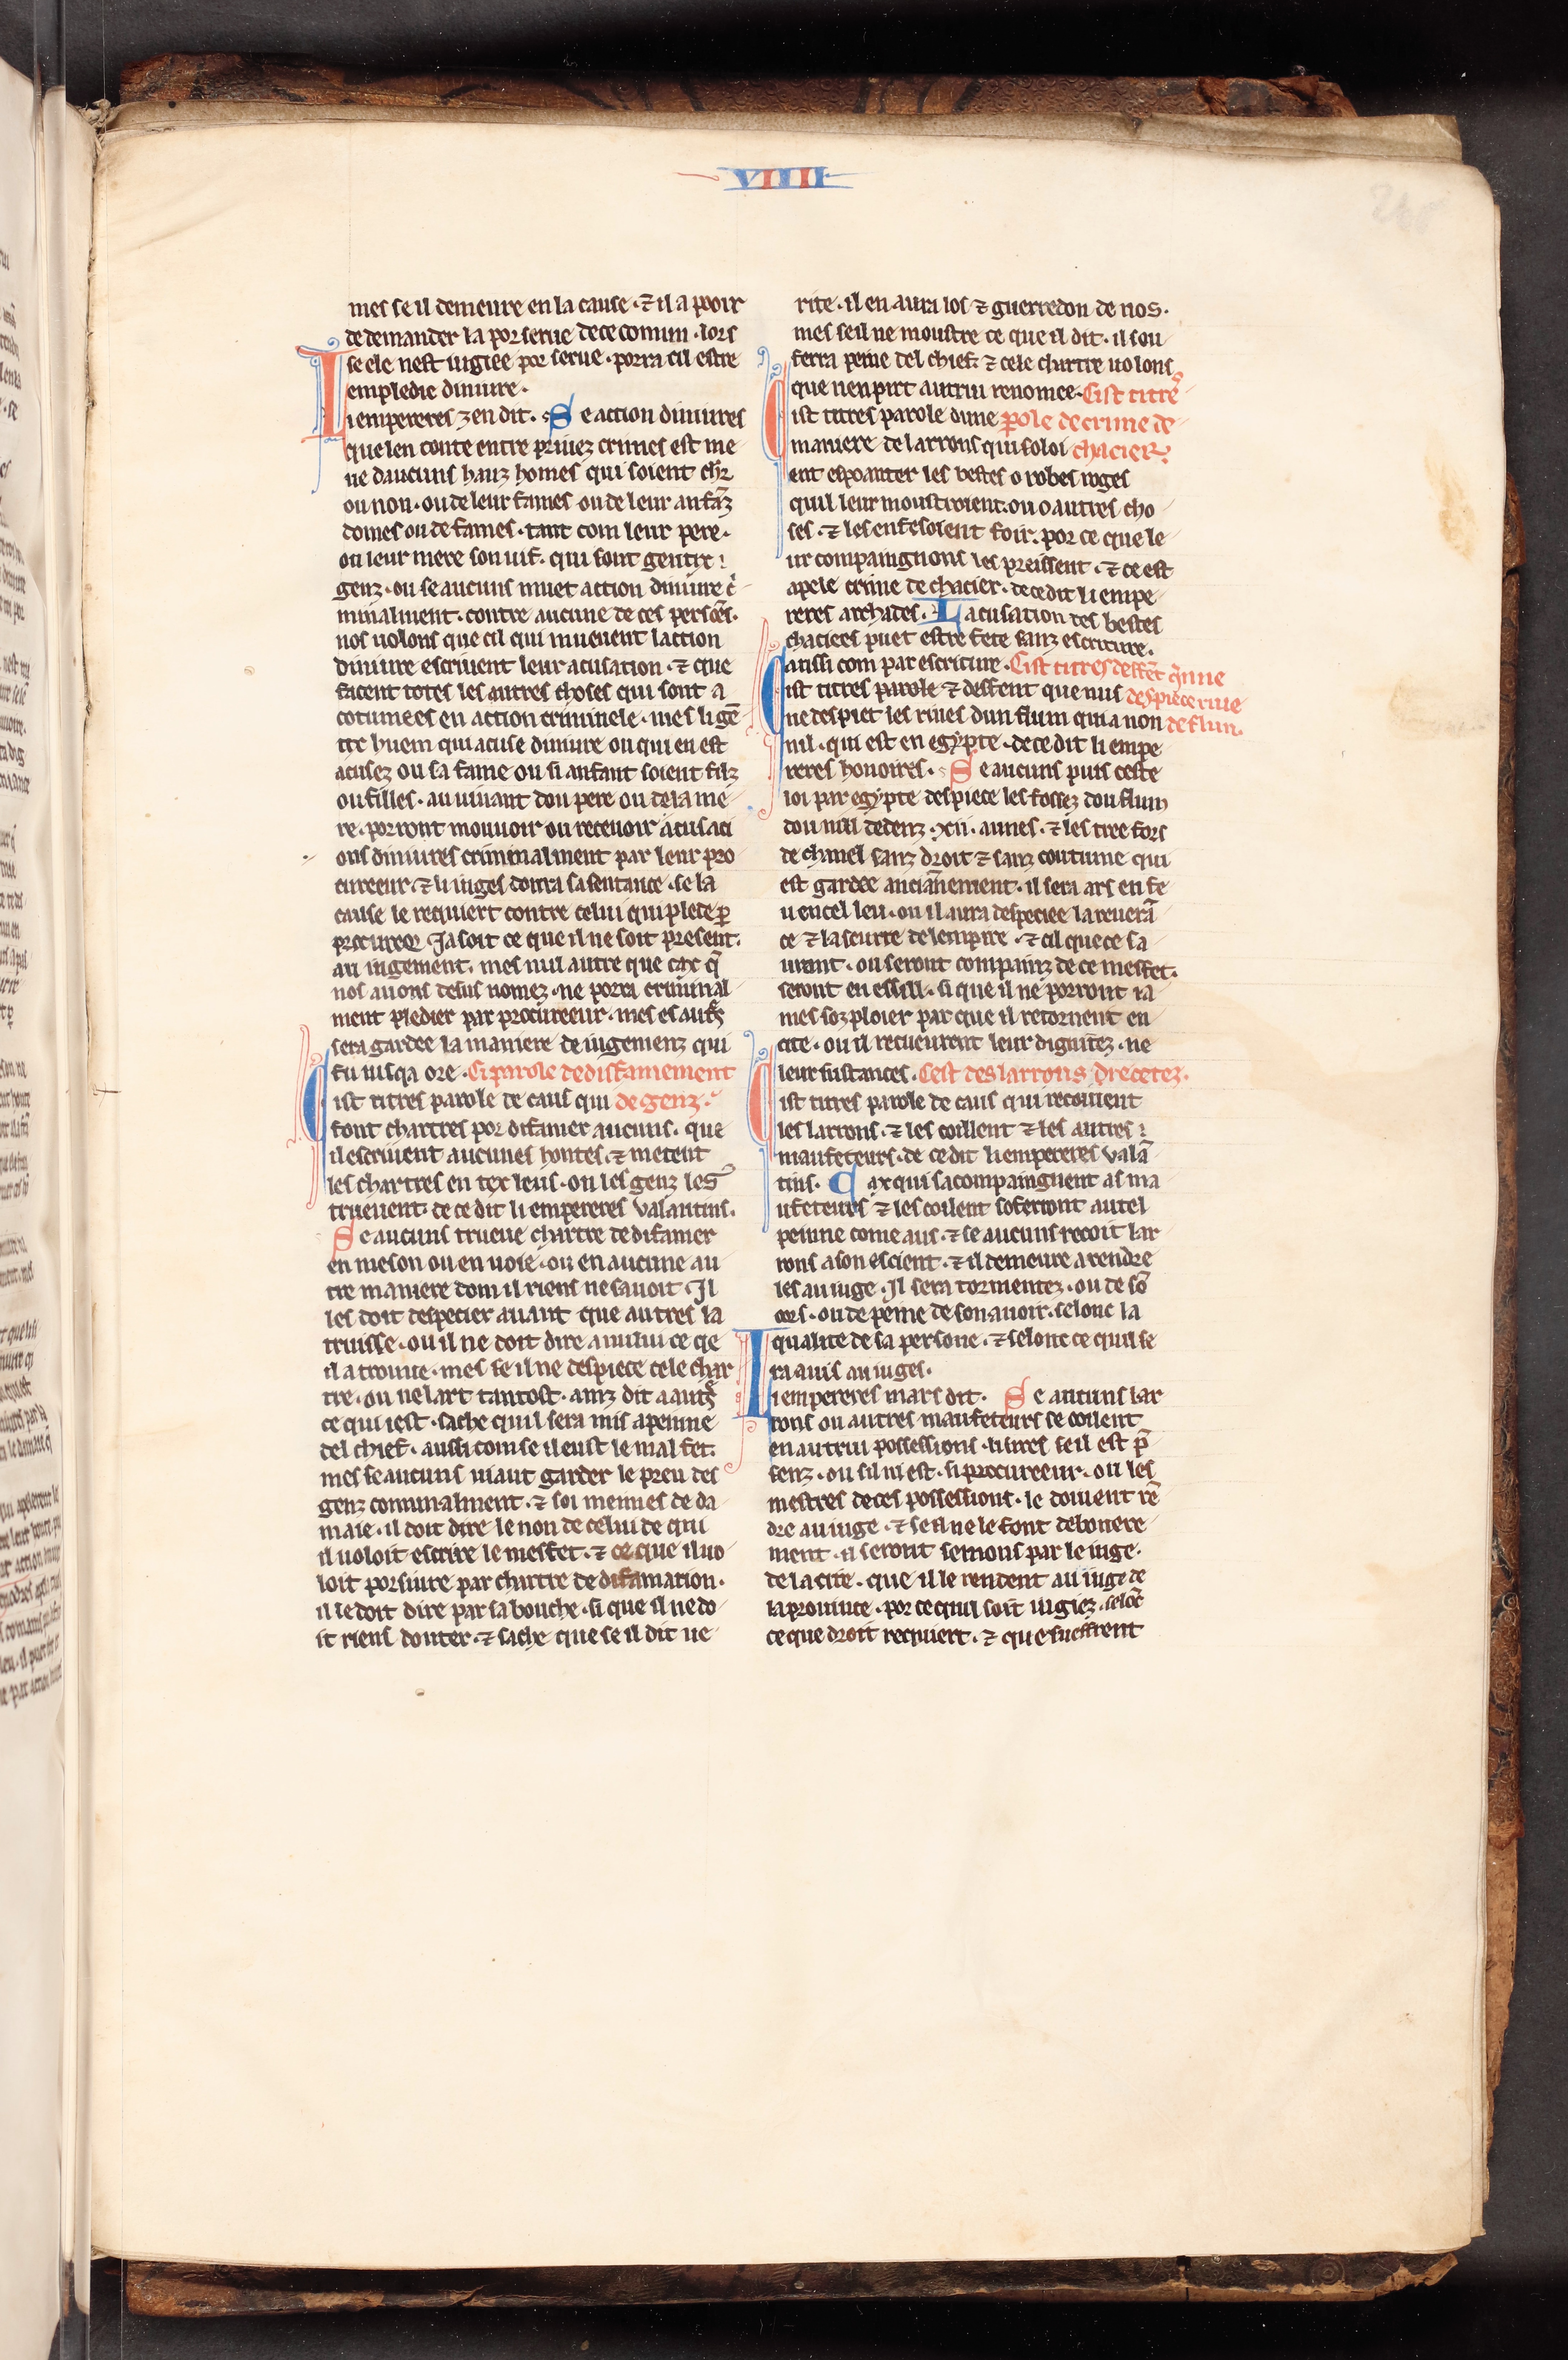 VIIII
mes se il demeure en la cause · ⁊ il a pooir
de demander la por serue de ce comun · lors
se ele nest iugiee por serue · porra cil estre
empledie diniure ·
Li empereres zen dit · Se action diniures
que len conte entre priuez crimes est me
ne daucuns hauz homes qui soient chr̄
ou non · ou de leur fames ou de leur anfāz
domes ou de fames · tant com leur pere ·
ou leur mere son uif · qui sont gentix
genz · ou se aucuns muet action diniure c̓
minalment · contre aucune de ces persōes ·
nos uolons que cil qui mueuent laction
diniure escriuent leur acusation · ⁊ que
facent totes les autres choses qui sont a
cotumees en action criminele · mes li gē
tix huem qui acuse diniure ou qui en est
acusez ou sa fame ou si anfant soient filz
ou filles · au uiuant dou pere ou de la me
re · porront mouuoir ou receuoir acusaci
ons diniures criminalment par leur pro
cureeur · ⁊ li iuges donra sa sentance · se la
cause le requiert contre celui qui plede ꝑ
procureor Ja soit ce que il ne soit present ·
au iugement · mes nul autre que cax q̄
nos auons desus nomez · ne porra criminal
ment pledier par procureeur · mes es aut̓s
sera gardee la maniere de iugemenz qui
fu iusqa ore · Ci parole de disfamement
Cist titres parole de caus qui de genz ·
font chartres por difamer aucuns · que
il escriuent aucunes hontes · ⁊ metent
les chartres en tex leus · ou les genz les
trueuent · de ce dit li empereres Valantins ·
Se aucuns trueue chartre de difamer
en meson ou en uoie · ou en aucune au
tre maniere dom il riens ne sauoit · Il
les doit despecier auant que autres la
truisse · ou il ne doit dire a nului ce qe
il a trouue · mes se il ne despiece cele char
tre · ou ne lart tantost · ainz dit a aut̓s
ce qui iest · sache quil sera mis a peinne
del chief · aussi com se il eust le mal fet ·
mes se aucuns uiaut garder le preu des
genz comunalment · ⁊ soi meimes de da
maie · il doit dire le non de celui de qui
il uoloit escrire le mesfet · ⁊ ce que il uo
loit porsuire par chartre de difamation ·
il le doit dire par sa bouche · si que il ne do
it riens douter · ⁊ sache que se il dit ue
rite · il en aura los ⁊ guerredon de nos ·
mes se il ne moustre ce que il dit · il sou
ferra peine del chief · ⁊ cele chartre uolons
que nen pirt autrui renomee · Cist titr̓e
Cist titres parole dune ꝑole de crime de
maniere de larrons qui soloi chacier ·
ent espoanter les bestes o robes roges
quil leur moustroient · ou o autres cho
ses · ⁊ les en fesoient foir · por ce que le
ur compaingnons les preissent · ⁊ ce est
apele crime de chacier · de ce dit li empe
reres archades · Lacusation des bestes
chaciees puet estre fete sanz escriture ·
ausi com par escriture · Cist titres desfēt q̓ nne
Cist titres parole ⁊ desfent que nus despiece riue
ne despiet les riues dun flum qui a non de flun ·
nil · qui est en egypte · de ce dit li empe
reres honoires · Se aucuns puis ceste
loi par egypte despiece les fossez dou flum
dou nill dedenz · xii · aunes · ⁊ les tree fors
de chanel sanz droit ⁊ sanz coutume qui
est gardee anciānement · il sera ars en fe
u en cel leu · ou il aura despeciee la reuerā
ce ⁊ la seurte de lempire · ⁊ cil que ce sa
uront · ou seront compainz de ce mesfet ·
seront en essill · si que il ne porront ia
mes soz ploier par que il retornent en
cite · ou il recueurent leur dignitez · ne
leur sustances · Cest des larrons ⁊ recetez ·
Cist titres parole de caus qui recoiuent
les larrons · ⁊ les coillent ⁊ les autres
maufeteurs · de ce dit li empereres Valā
tins · Cax qui sacompainguent as ma
ufeteurs ⁊ les coilent soferront autel
peinne come aus · ⁊ se aucuns recoit lar
rons a son escient · ⁊ il demeure a rendre
les au iuge · Il sera tormentez · ou de sō
cors · ou de peine de son auoir · selonc la
qualite de sa persone · ⁊ selonc ce quil se
ra auis au iuges ·
Li empereres mars dit · Se aucuns lar
rons ou autres maufeteurs se coilent
en autrui possessions · li sires se il est p̄
senz · ou sil ni est · si procureeur · ou les
mestres de ces possessions · le doiuent rē
dre au iuge · ⁊ se il ne le font debonere
ment · il seront semons par le iuge ·
de la cite · que il le rendent au iuge de
la prouince · por ce quil soit iugiez · selōc
ce que droit requiert · ⁊ que sueffrent